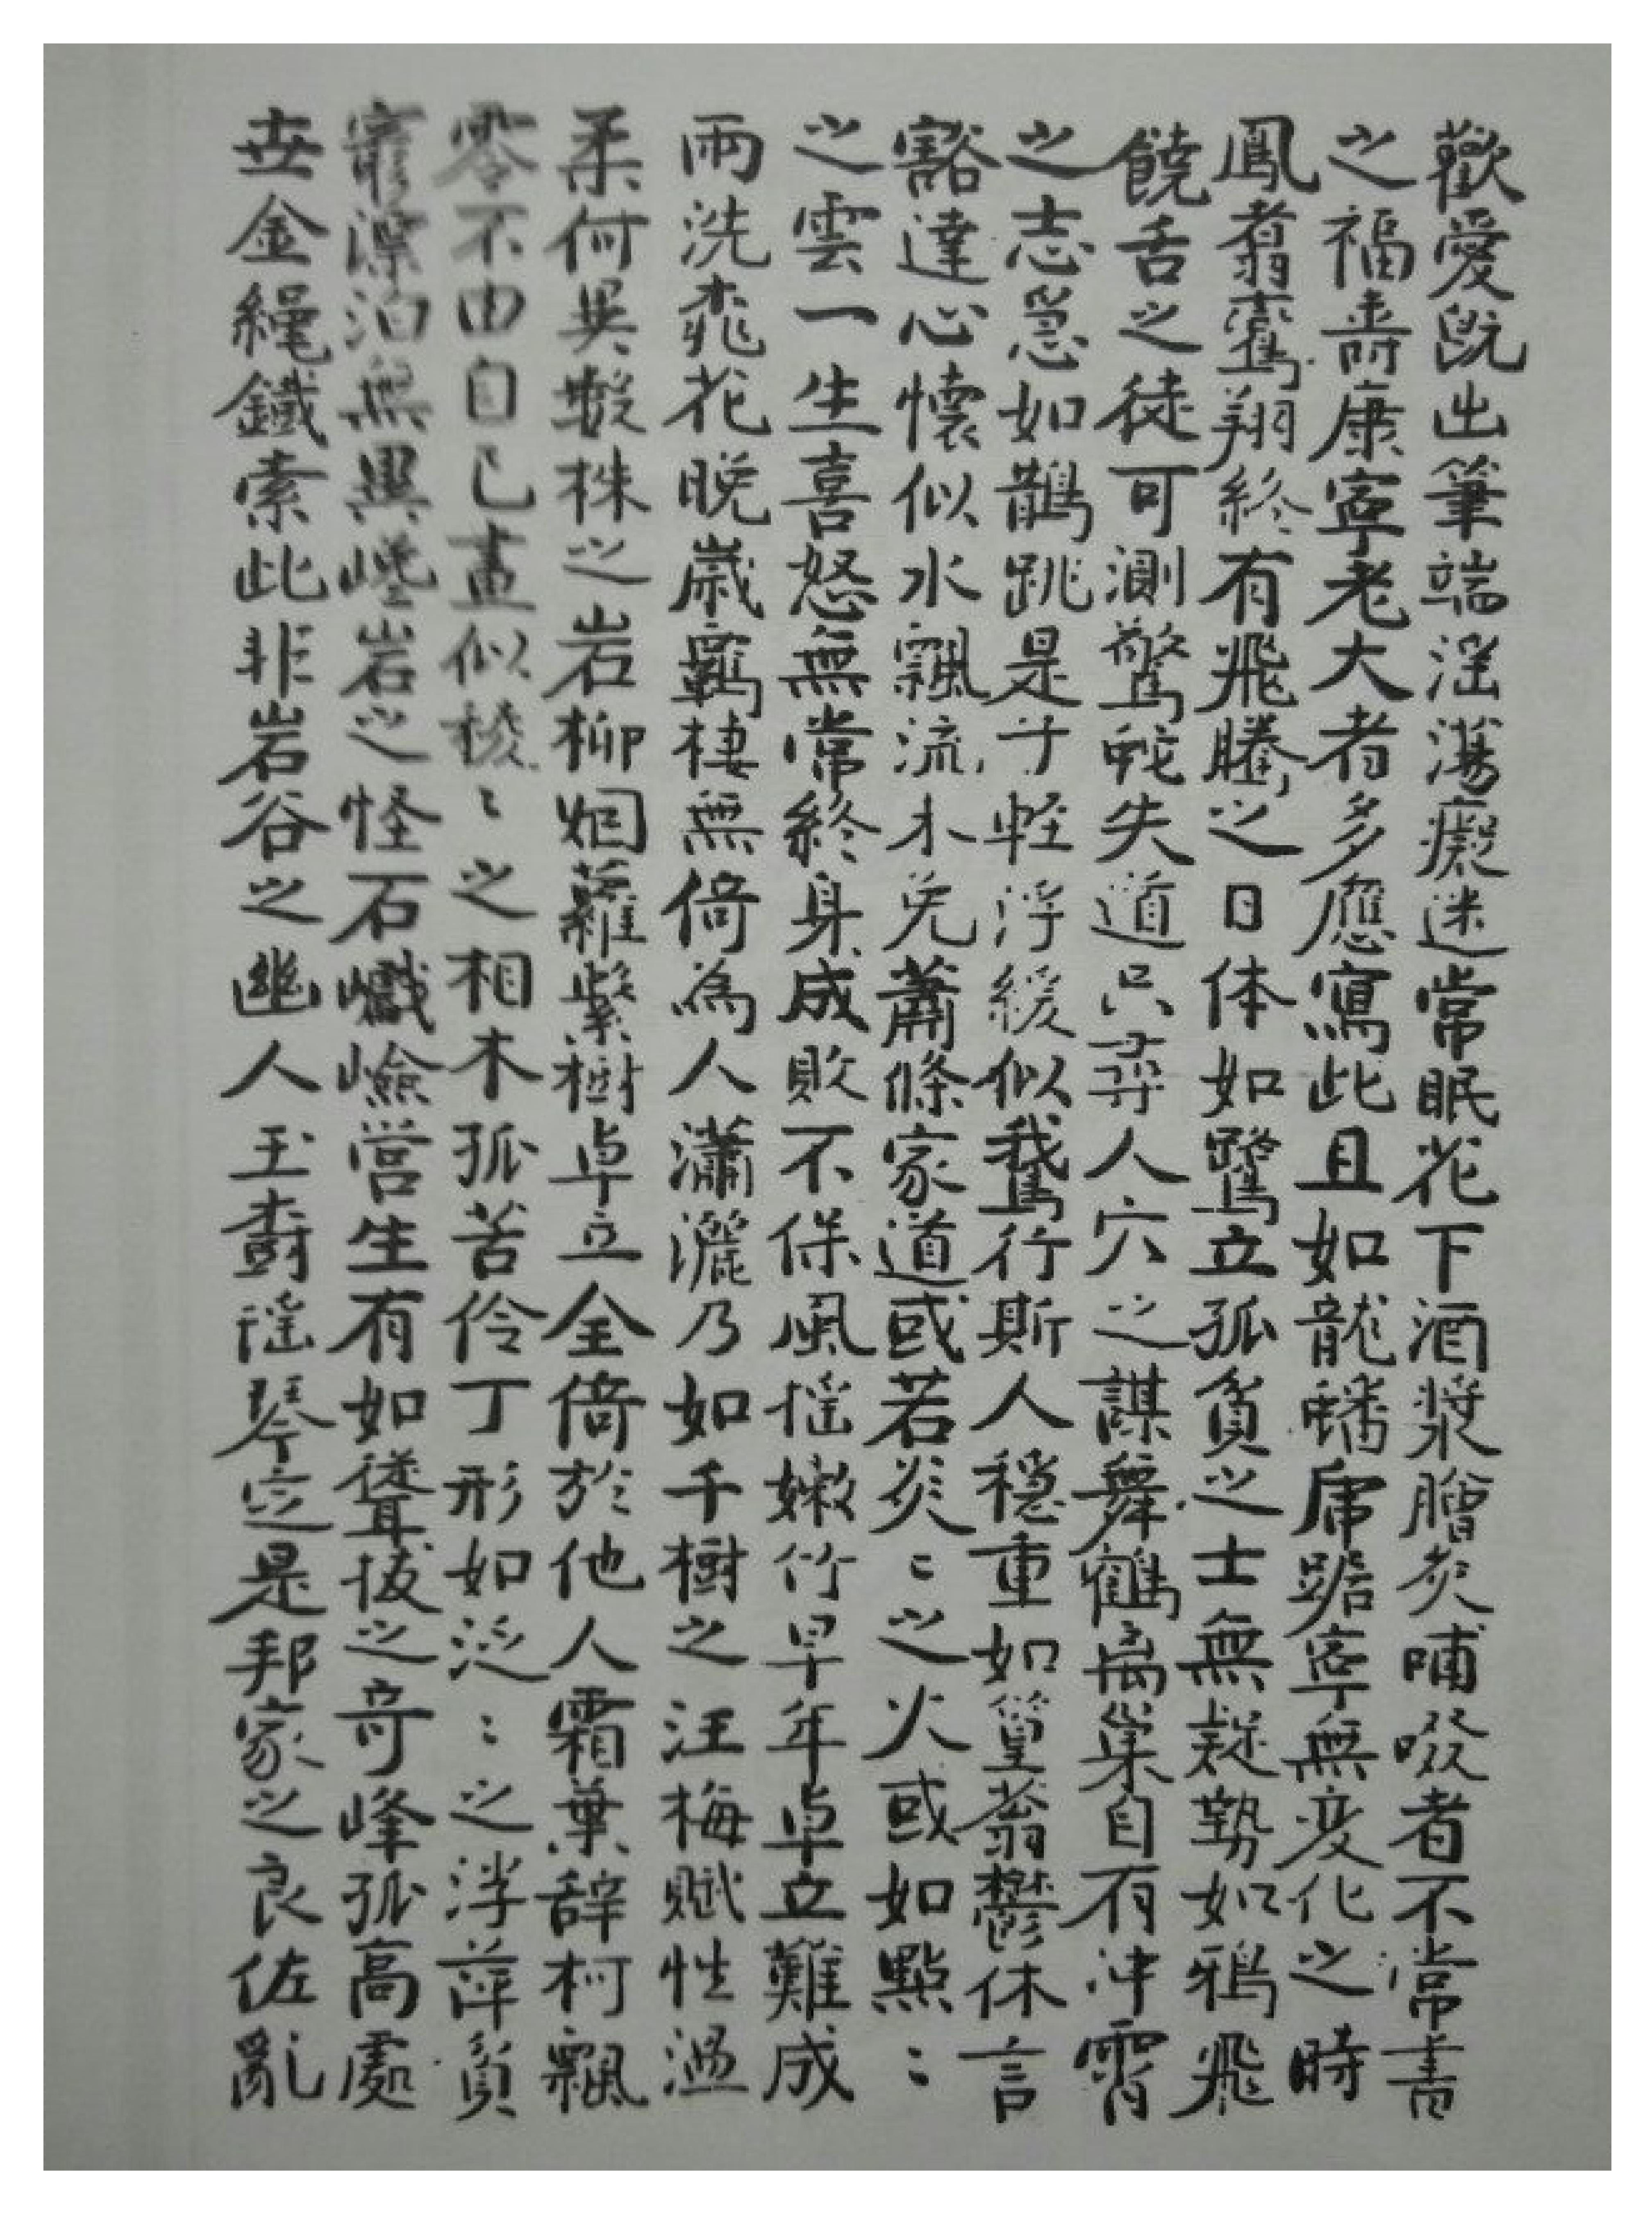 歡愛既出筆端淫蕩癡迷常眠花下酒漿膾炙哺啜者不常書
之福壽康寧老大者多應寫此且如龍蟠虎踞寧無变化之時
鳳翥鸞翔終有飛騰之日体如鷺立孤貧之士無疑勢如鴉飛
饒舌之徒可測驚蛇失道只尋人穴之謀舞鶴离巢自有冲霄
之志急如鵲跳是子輕浮緩似鵞行斯人穩重如篁蓊鬱休言
豁達心懷似水飄流木免蕭條家道或若炎〻之火或如點〻
之雲一生喜怒無常終身成敗不保風摇嫩竹早年卓立難成
雨洗桃花晚歲羈棲無倚為人瀟灑乃如千樹之汪梅賦性溫
柔何異數株之岩柳烟蘿縈樹卓立全倚於他人霜葉辞柯飄
零不由自已畫似棱〻之相木孤苦伶丁形如泛〻之浮萍貧
窮漂泊無異巉岩之怪石巇嶮营生有如聳拔之奇峰孤高處
世金繩鐵索此非岩谷之幽人玉樹謡琴定是邦家之良佐亂